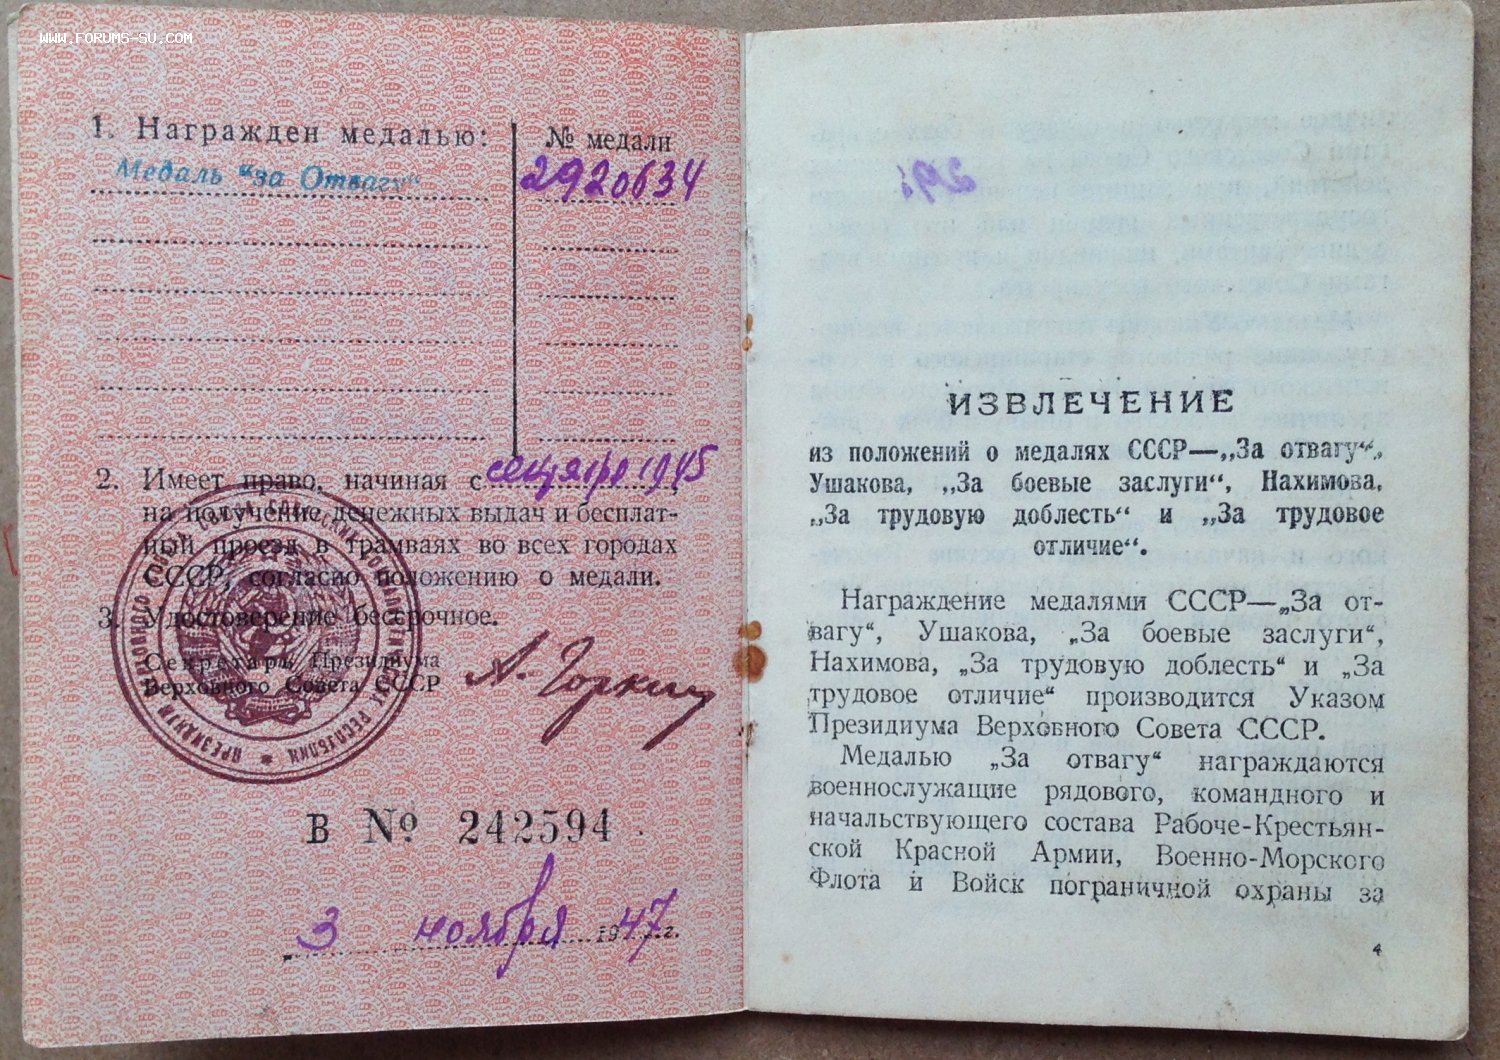 WWW.FORUMS-SU.COM
1. Награжден медалью:
№ медали
Медаль "за Отвагу"
2920634
2. Имеет право, начиная с сентября 1945,
на получение денежных выдач и бесплат-
ный проезд в трамваях во всех городах
СССР, согласно положению о медали.
3. Удостоверение бессрочное.
Секретарь Президиума
Верховного Совета СССР
А. Горкин
В № 242594
3 ноября 1947 г.
ИЗВЛЕЧЕНИЕ
из положений о медалях СССР—„За отвагу“,
Ушакова, „За боевые заслуги“, Нахимова,
„За трудовую доблесть“ и „За трудовое
отличие“.
Награждение медалями СССР—„За от-
вагу“, Ушакова, „За боевые заслуги“,
Нахимова, „За трудовую доблесть“ и „За
трудовое отличие“ производится Указом
Президиума Верховного Совета СССР.
Медалью „За отвагу“ награждаются
военнослужащие рядового, командного и
начальствующего состава Рабоче-Крестьян-
ской Красной Армии, Военно-Морского
Флота и Войск пограничной охраны за
4